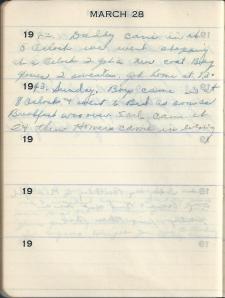 MARCH 28
1942. Daddy came in at
6 Oclock we went shopping
at 2 Oclock I got a new coat
2 sweaters, got home at
1943. Sunday, Boys came in at
8 Oclock & went to Bed as soon as
Breakfast was over. Jack came at
Homers came in
19
19